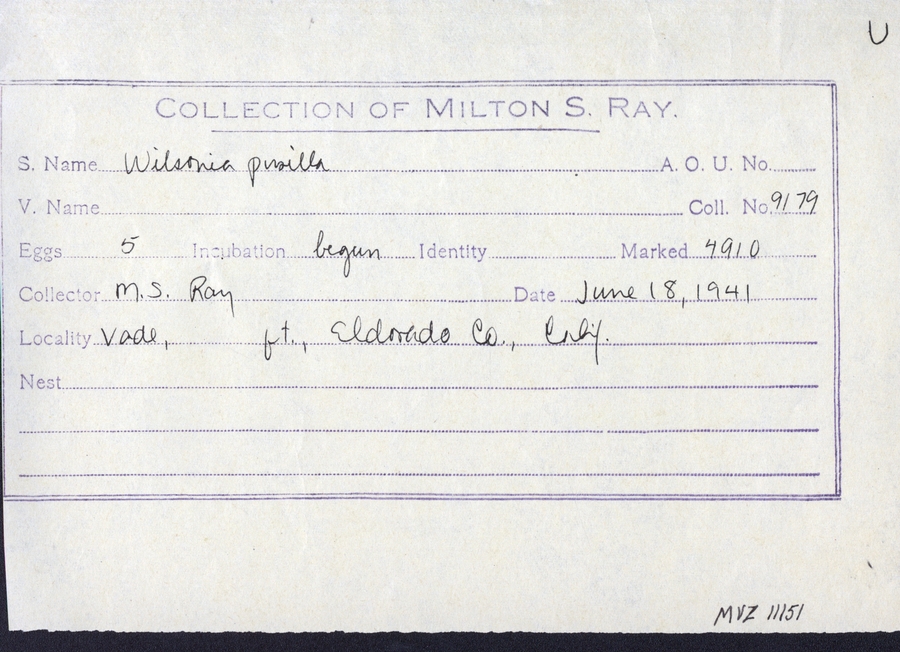 U
COLLECTION OF MILTON S. RAY.
S. Name Wilsonia pusilla A. O. U. No.
V. Name Coll. No. 9179
Eggs 5 Incubation begun Identity Marked 4910
Collector M.S. Ray Date June 18, 1941
Locality Vade, ft., Eldorado Co., Calif.
Nest
MVZ 11151